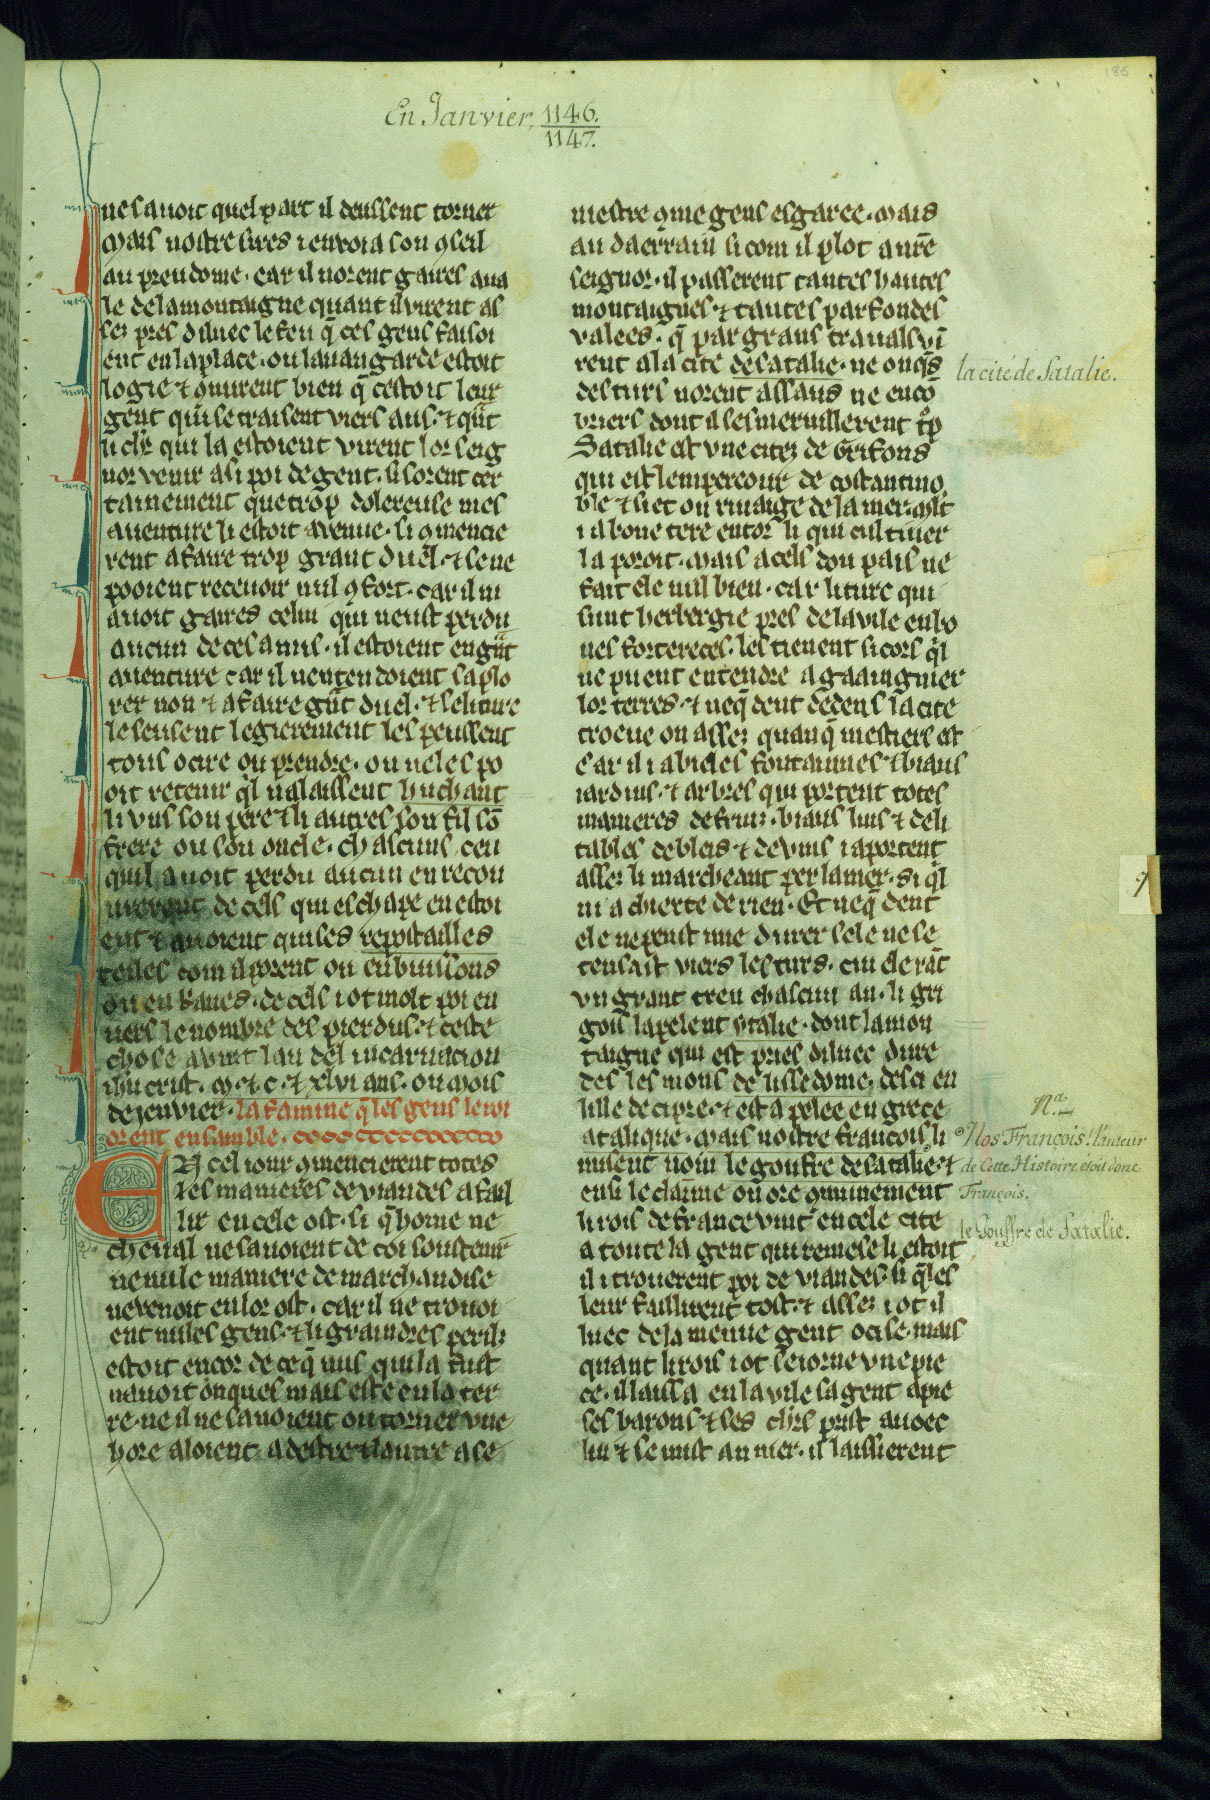 185
En Janvier, 1146.
1147.
ne savoit quel part il deussent torner
Mais nostre sires i envoia son ꝯseil
au preudome. car il norent gaires ava
le de la montaigne quant il virent as
sez pres diluec le feu q̄ ces gens faisoi
ent en la place. ou lavangarde estoit
logie ⁊ ꝯnurent bien q̄ cestoit leur
gent qui se traisent viers aus. ⁊ qn̄t
li chr̄ qui la estoient virent lor seig
nor venir a si poi de gent. si sorent cer
tainement que trop dolereuse mes
aventure li estoit avenue. si ꝯmencie
rent a faire trop grant duel. ⁊ se ne
pooient recevoir nul ꝯfort. car il ni
avoit gaires celui qui neust perdu
aucun de ces amis. il estoient en gn̄t
aventure car il nentendoient sa plo
rer non ⁊ a faire gn̄t duel. ⁊ se li turc
le seusent legierement les peussent
tous ocire ou prendre. ou ne les po
oit retenir ql̄ nalaissent huchant
li uns son pere ⁊ li autres son fil sō
frere ou son oncle. chascuns ceu
quil avoit perdu aucun en recou
vrerent de cels qui eschape en estoi
ent ⁊ avoient quises repostailles
teiles com il porent ou en buissons
ou en kaves. de cels i ot molt poi en
vers le nombre des pierdus. ⁊ ceste
chose avint lan del incarnacion
ihū crist. M. ⁊ .c. ⁊ xlvi ans. ou mois
de jenvier. la famine q̄ les gens le roi
orent ensamble.
EN cel iour ꝯmencierent totes
les manieres de viandes a fail
lir en cele ost. si q̄ home ne
cheval ne savoient de coi soustenir
ne nule maniere de marchandise
ne venoit en lor ost. car il ne trovoi
ent nules gens. ⁊ li graindres perilz
estoit encor de ce q̄ nus qui la fust
navoit onques mais este en la ter
re. ne il ne savoient ou torner une
hore aloient a destre ⁊ lautre a se
niestre ꝯme gens esgaree. Mais
au daerrain si com il plot a nrē
seignor. il passerent tantes hautes
montaignes. ⁊ tantes parfondes
valees. q̄ par grans travals vī
rent a la cite de satalie. ne onqs̄
des turs norent assaus ne encō
briers dont il sesmervillerent tp̄
Satalie est une citez de Grifons
qui est lempereour de costantino
ble ⁊ siet ou rivaige de la mer. mlt
i a bone tere entor li qui cultiver
la poroit. Mais a cels dou pais ne
fait ele nul bien. car li turc qui
sunt herbergie pres de la vile en bo
nes fortereces. les tienent si cors ql̄
ne puent entendre a gaaingnier
lor terres. ⁊ neq̄ dent dedens la cite
troeve on assez quanq̄ mestiers est
Car il i a bieles fontainnes ⁊ biaus
iardins. ⁊ arbres qui portent totes
manieres de fruiz. biaus lius ⁊ deli
tables de bleis ⁊ de vins i aportent
assez li marcheant per la mer. si ql̄
ni a chierte de rien. Et neq̄ dent
ele ne peust mie durer sele ne se
tensast viers les turs. cui ele rāt
un grant treu chascun an. li gri
gois lapelent ytalie. dont la mon
taigne qui est pries diluec dure
des les mons de lissedome. desci en
lille de cipre. ⁊ est apelee en grece
atalique. Mais nostre francois li
misent nom le goufre de satalie. ⁊
ensi le claīme on ore ꝯmunement
li rois de france vint en cele cite
a toute la gent qui remese li estoit
il i troverent poi de viandes. si q̄ les
leur faillirent tost. ⁊ assez i ot il
luec de la menue gent ocise. mais
quant li rois i ot seiorne une pie
ce. il laissa en la vile sa gent a pie
ses barons ⁊ ses chr̄s prist avoec
lui ⁊ se mist au mer. il laissierent
la cité de Satalie.
Nᵃ.
Nos François! l'auteur
de Cette Histoire étoit donc
François.
le Gouffre de Satalie.